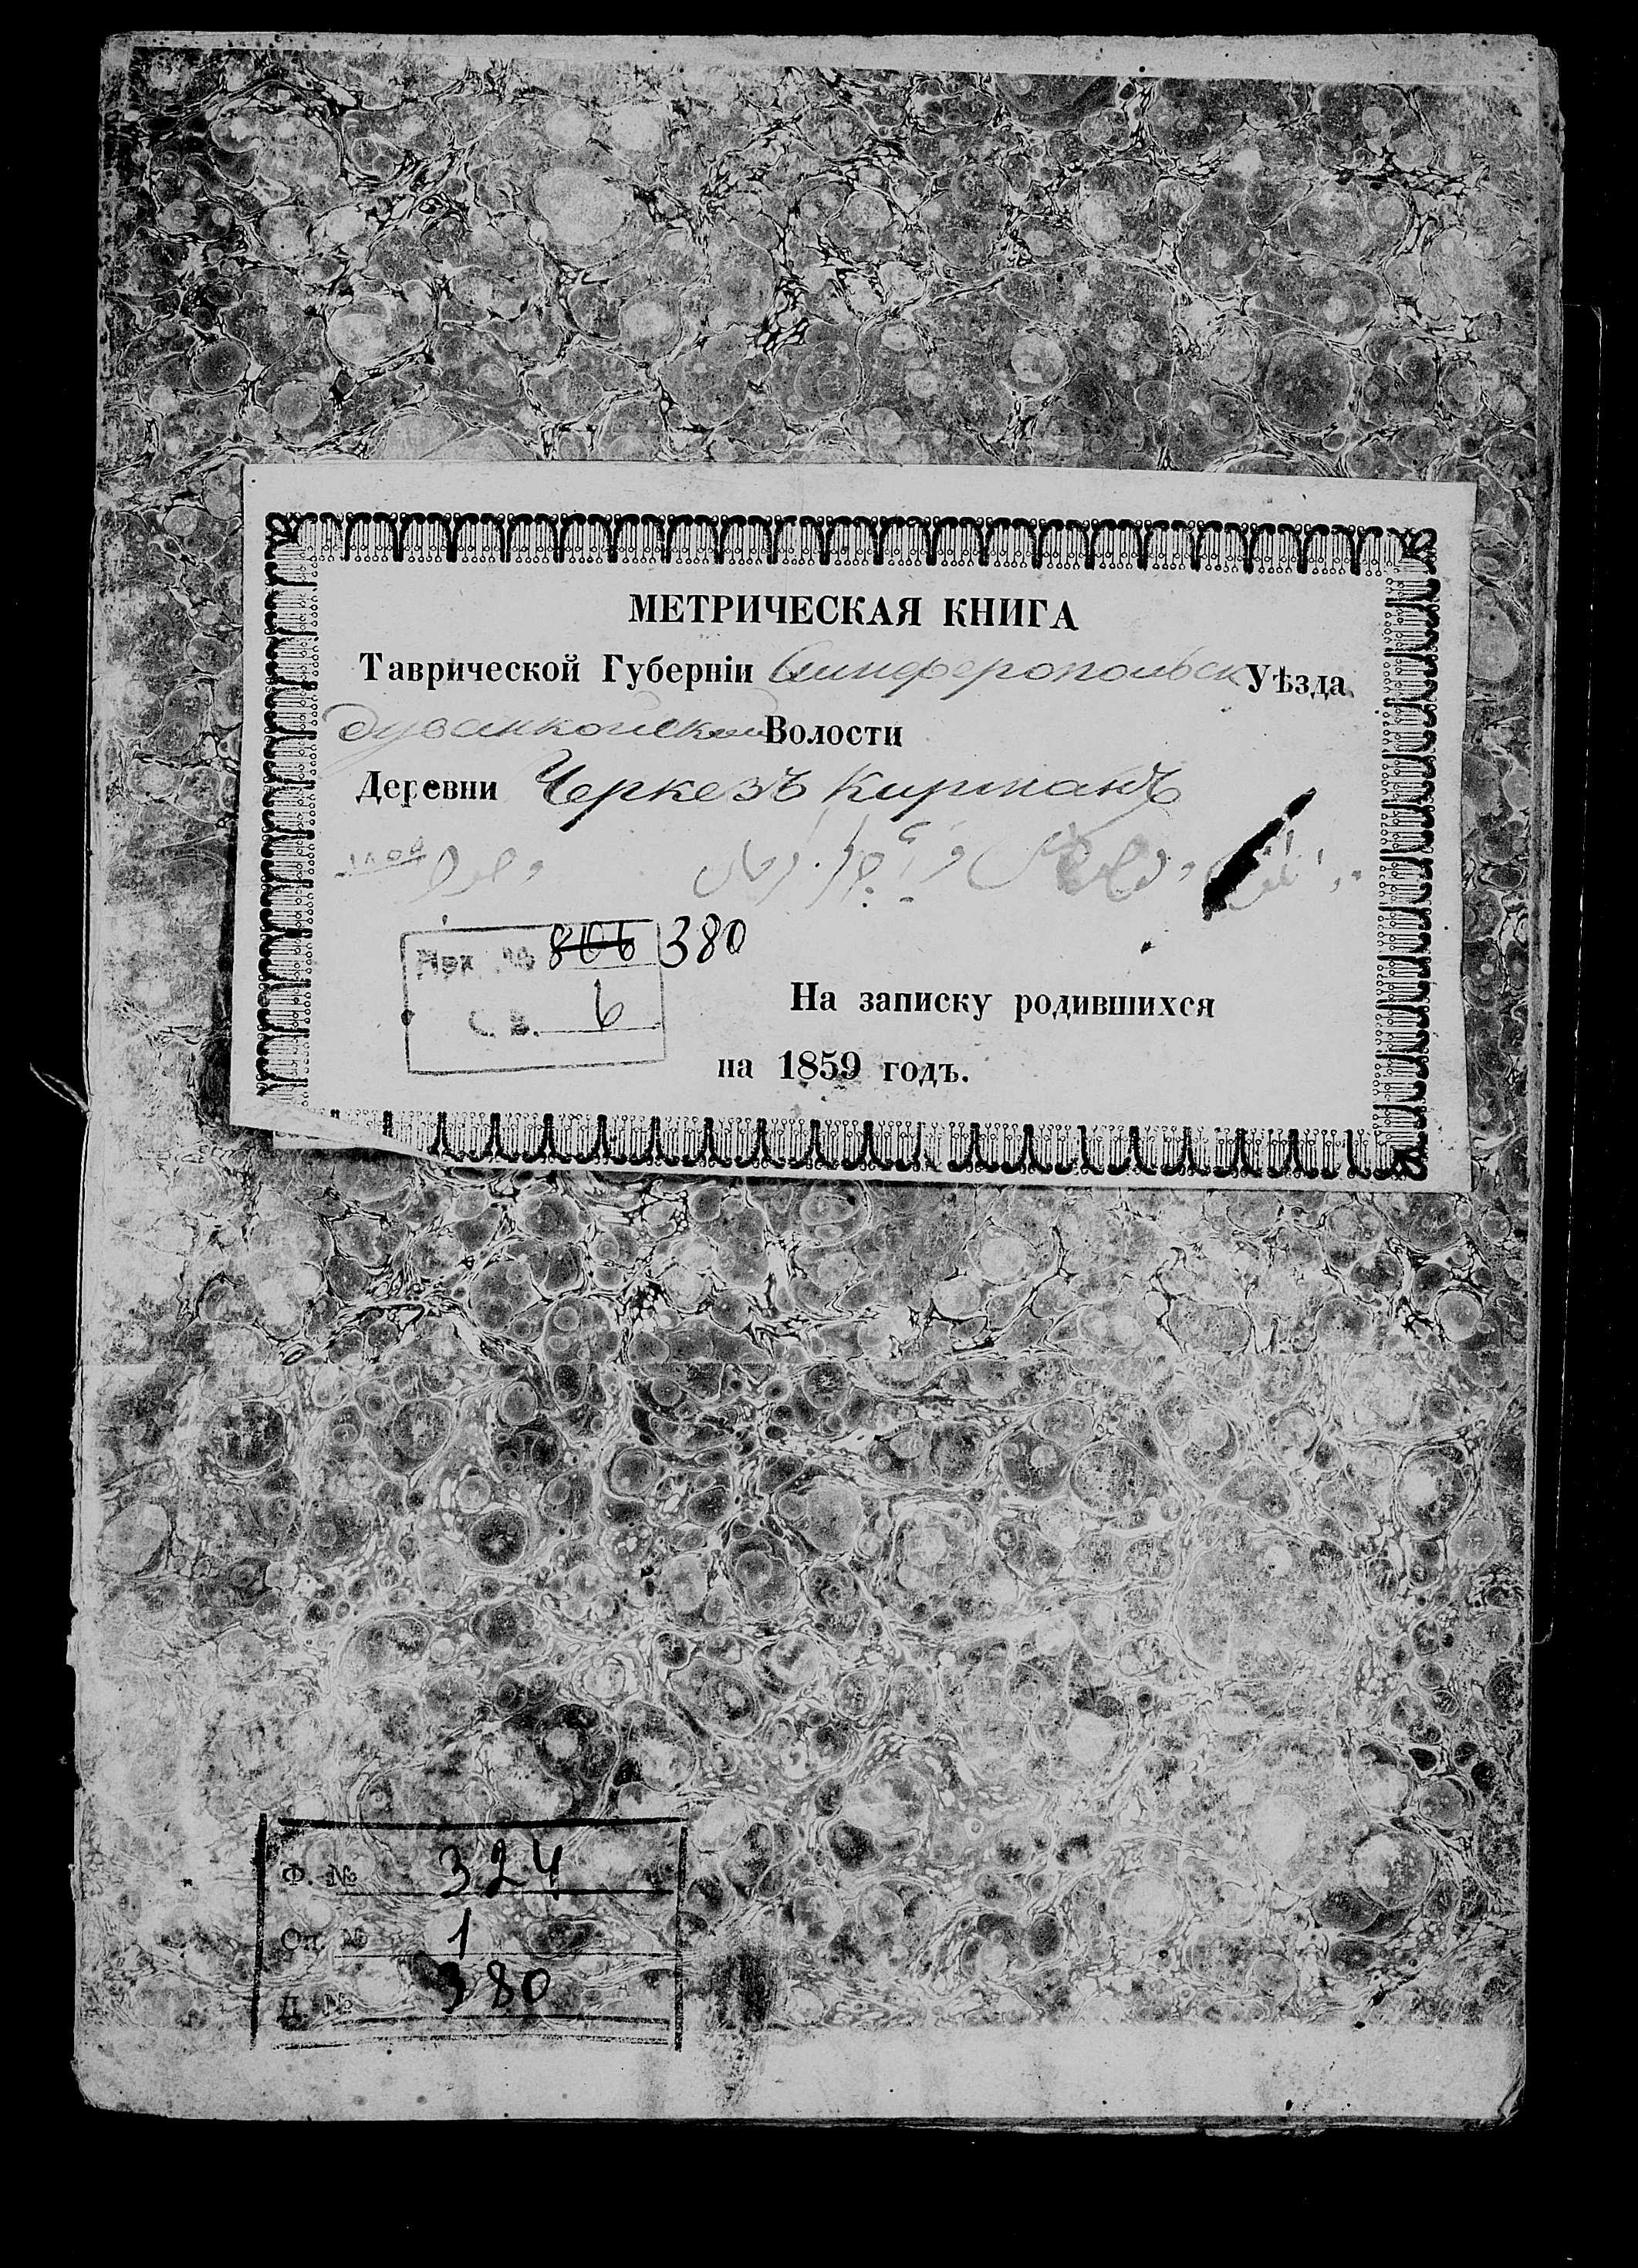 МЕТРИЧЕСКАЯ КНИГА
Таврической Губерніи Симферопольск Уѣзда
Дуванкойской Волости
Деревни Черкезъ Кирманъ
Арх. № 806 380
С. В. 6
На записку родившихся
на 1859 годъ.
Ф. № 324
Оп. № 1
Д. № 380